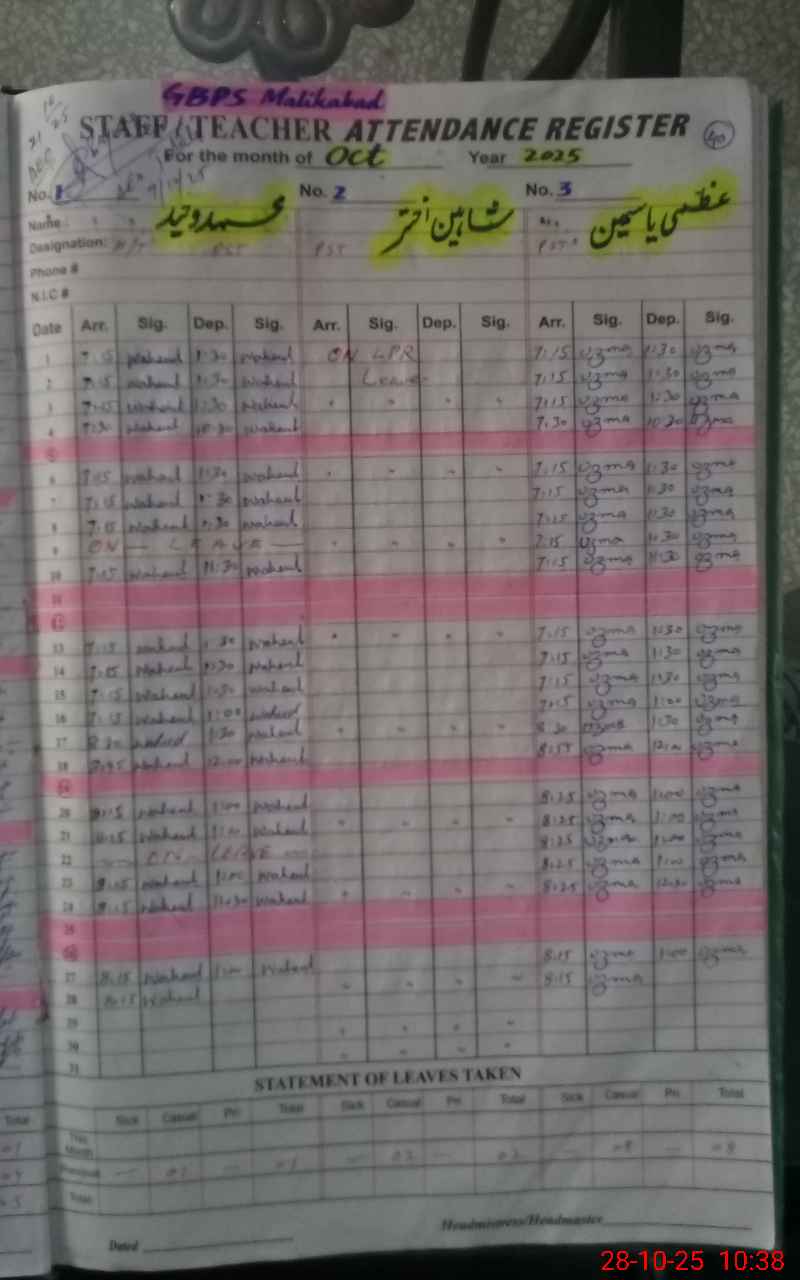 GBPS Malikabad
STAFF / TEACHER ATTENDANCE REGISTER
40
For the month of Oct Year 2025
No. 1 No. 2 No. 3
9/10/25
Name: محمد وحید شاہین اختر عظمی یاسمین
Designation: PST PST
Phone #
N.I.C #
Date Arr. Sig. Dep. Sig. Arr. Sig. Dep. Sig. Arr. Sig. Dep. Sig.
1 7:15 waheed 1:30 waheed ON LPR 7:15 uzma 1:30 uzma
2 7:15 waheed 1:30 waheed Leave 7:15 uzma 1:30 uzma
3 7:15 waheed 1:30 waheed 7:15 uzma 1:30 uzma
4 7:30 waheed 10:20 waheed 7:30 uzma 10:20 uzma
5
6 7:15 waheed 1:30 waheed 7:15 uzma 1:30 uzma
7 7:15 waheed 1:30 waheed 7:15 uzma 1:30 uzma
8 7:15 waheed 1:30 waheed 7:15 uzma 1:30 uzma
9 ON — LEAVE — 7:15 uzma 1:30 uzma
10 7:15 waheed 11:30 waheed 7:15 uzma 11:30 uzma
11
12
13 7:15 waheed 1:30 waheed 7:15 uzma 1:30 uzma
14 7:15 waheed 1:30 waheed 7:15 uzma 1:30 uzma
15 7:15 waheed 1:30 waheed 7:15 uzma 1:30 uzma
16 7:15 waheed 1:00 waheed 7:15 uzma 1:00 uzma
17 8:30 waheed 1:30 waheed 8:30 uzma 1:30 uzma
18 waheed 12:00 waheed uzma uzma
19
20 8:15 waheed 1:00 waheed 8:25 uzma 1:00 uzma
21 8:15 waheed 1:00 waheed 8:25 uzma 1:00 uzma
22 ON LEAVE 8:25 uzma 1:00 uzma
23 8:15 waheed 1:00 waheed 8:25 uzma 1:00 uzma
24 8:15 waheed 12:30 waheed 8:25 uzma 12:30 uzma
25
26
27 8:15 waheed 1:00 waheed 8:15 uzma 1:00 uzma
28 8:15 waheed 8:15 uzma
29
30
31
STATEMENT OF LEAVES TAKEN
Sick Casual Pri Total Sick Casual Pri Total Sick Casual Pri Total
This Month
Previous — — — — — 08 — 08
Total
Dated Headmistress/Headmaster
28-10-25 10:38